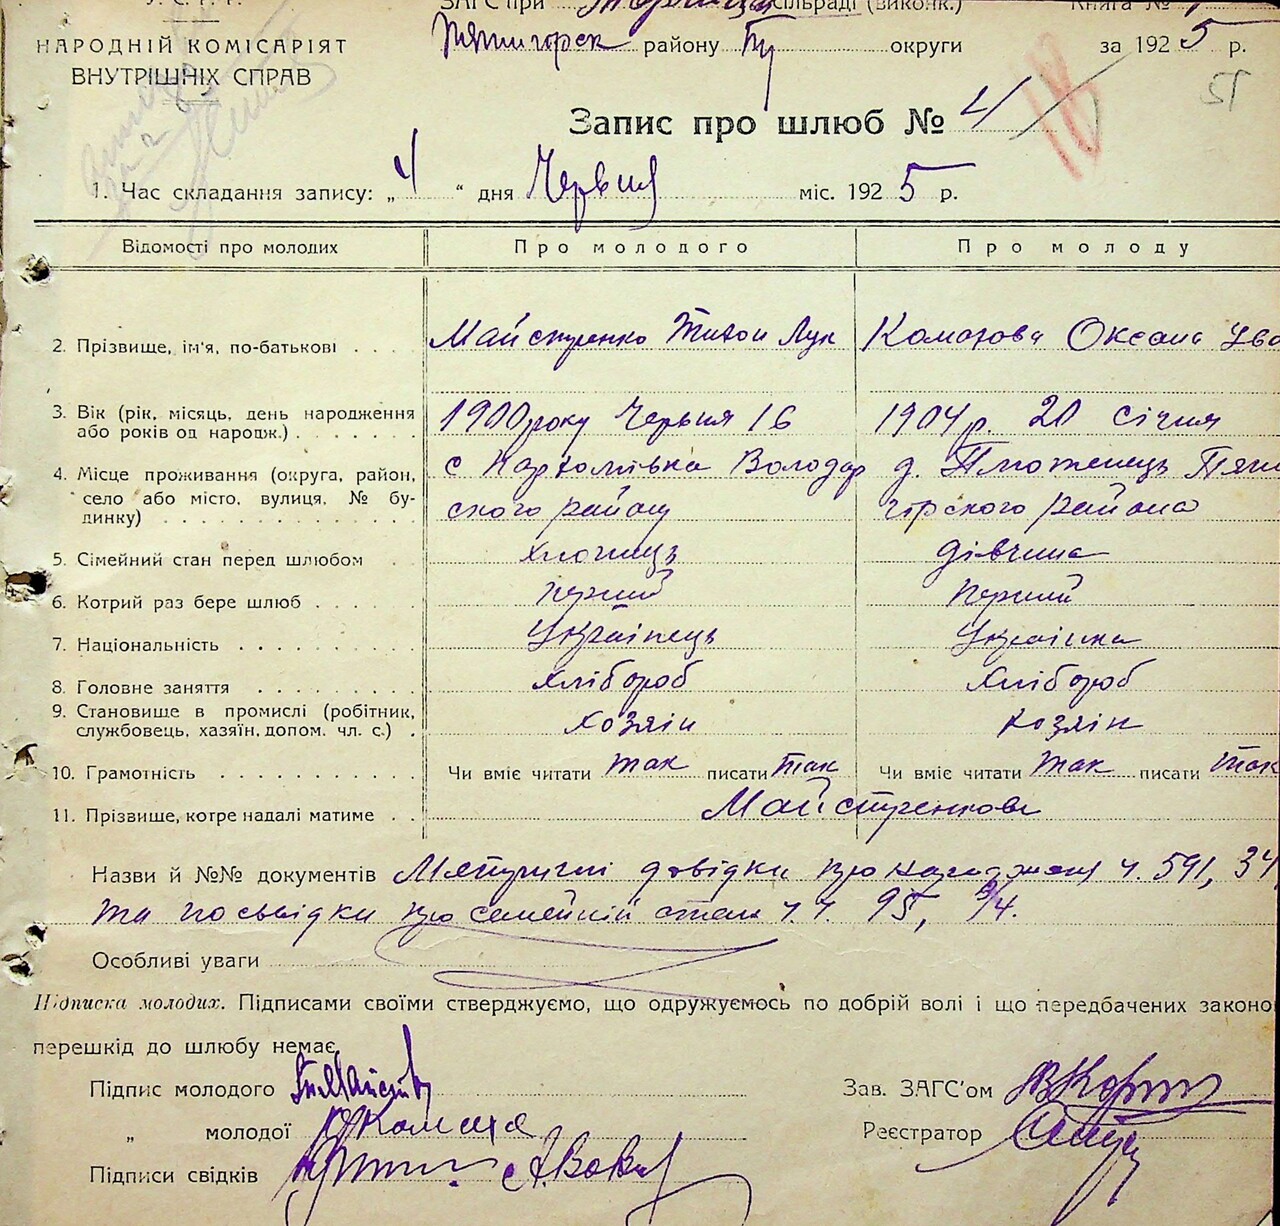 У.С.Р.Р.
ЗАГС при сільраді (виконк.) Книга №
НАРОДНІЙ КОМІСАРІЯТ
ВНУТРІШНІХ СПРАВ
району округи за 1925 р.
Запис про шлюб № 4
18
51
1. Час складання запису: „4“ дня Червня міс. 1925 р.
Відомості про молодих Про молодого Про молоду
2. Прізвище, ім'я, по-батькові Майстренко Тихон Лук Оксана
3. Вік (рік, місяць, день народження 1900 року Червня 16 1904 р. 20 січня
або років од народж.)
4. Місце проживання (округа, район, с Володар д.
село або місто, вулиця, № бу- ского району горского района
динку)
5. Сімейний стан перед шлюбом хлопець дівчина
6. Котрий раз бере шлюб перший перший
7. Національність Українець Українка
8. Головне заняття хлібороб хлібороб
9. Становище в промислі (робітник, хозяін хозяін
службовець, хазяїн, допом. чл. с.)
10. Грамотність Чи вміє читати так писати так Чи вміє читати так писати так
11. Прізвище, котре надалі матиме Майстренкове
Назви й №№ документів довідки про ч. 591, 34
та посвідки про семейний стан ч.ч. 95, 94.
Особливі уваги
Підписка молодих. Підписами своїми стверджуємо, що одружуємось по добрій волі і що передбачених законо
перешкід до шлюбу немає
Підпис молодого Зав. ЗАГС'ом
„ молодої Реєстратор
Підписи свідків